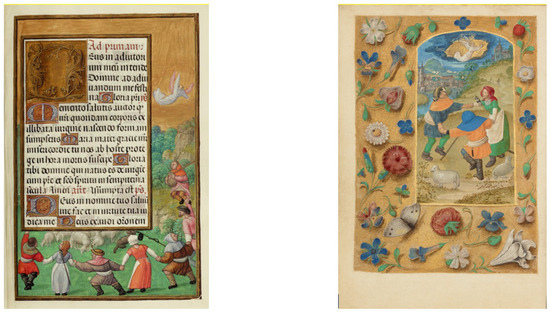 Ad primam
Deus in adiutor
ium meu intende
Domine ad adiu
uandum me festi
na Gloria pri
Memento salutis auctor q
quondam corporis ex
illibata virgine nascendo formam
sumpseris Maria mater gracie m
isericordie tu nos ab hoste prote
ge in hora mortis suscipe Gloria
tibi domine qui natus es de virgin
cum pre et sco spiritu in sempiterna
secula Amen Assumpta est ps
Deus in nomine tuo saluu
me fac et in virtute tua iu
dica me Deus exaudi oronem